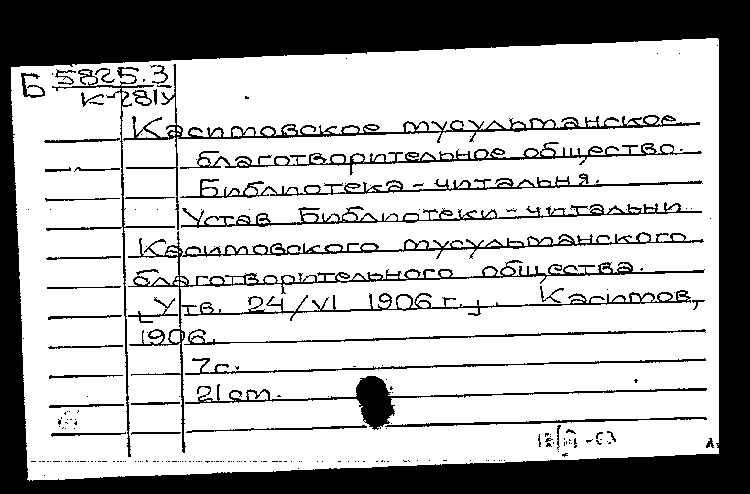 Б 5825.3
К-281у
Касимовское мусульманское
благотворительное общество.
Библиотека-читальня.
Устав Библиотеки-читальни
Касимовского мусульманского
благотворительного общества.
[Утв. 24/VI 1906 г.]. Касимов,
1906.
7с.
21 см.